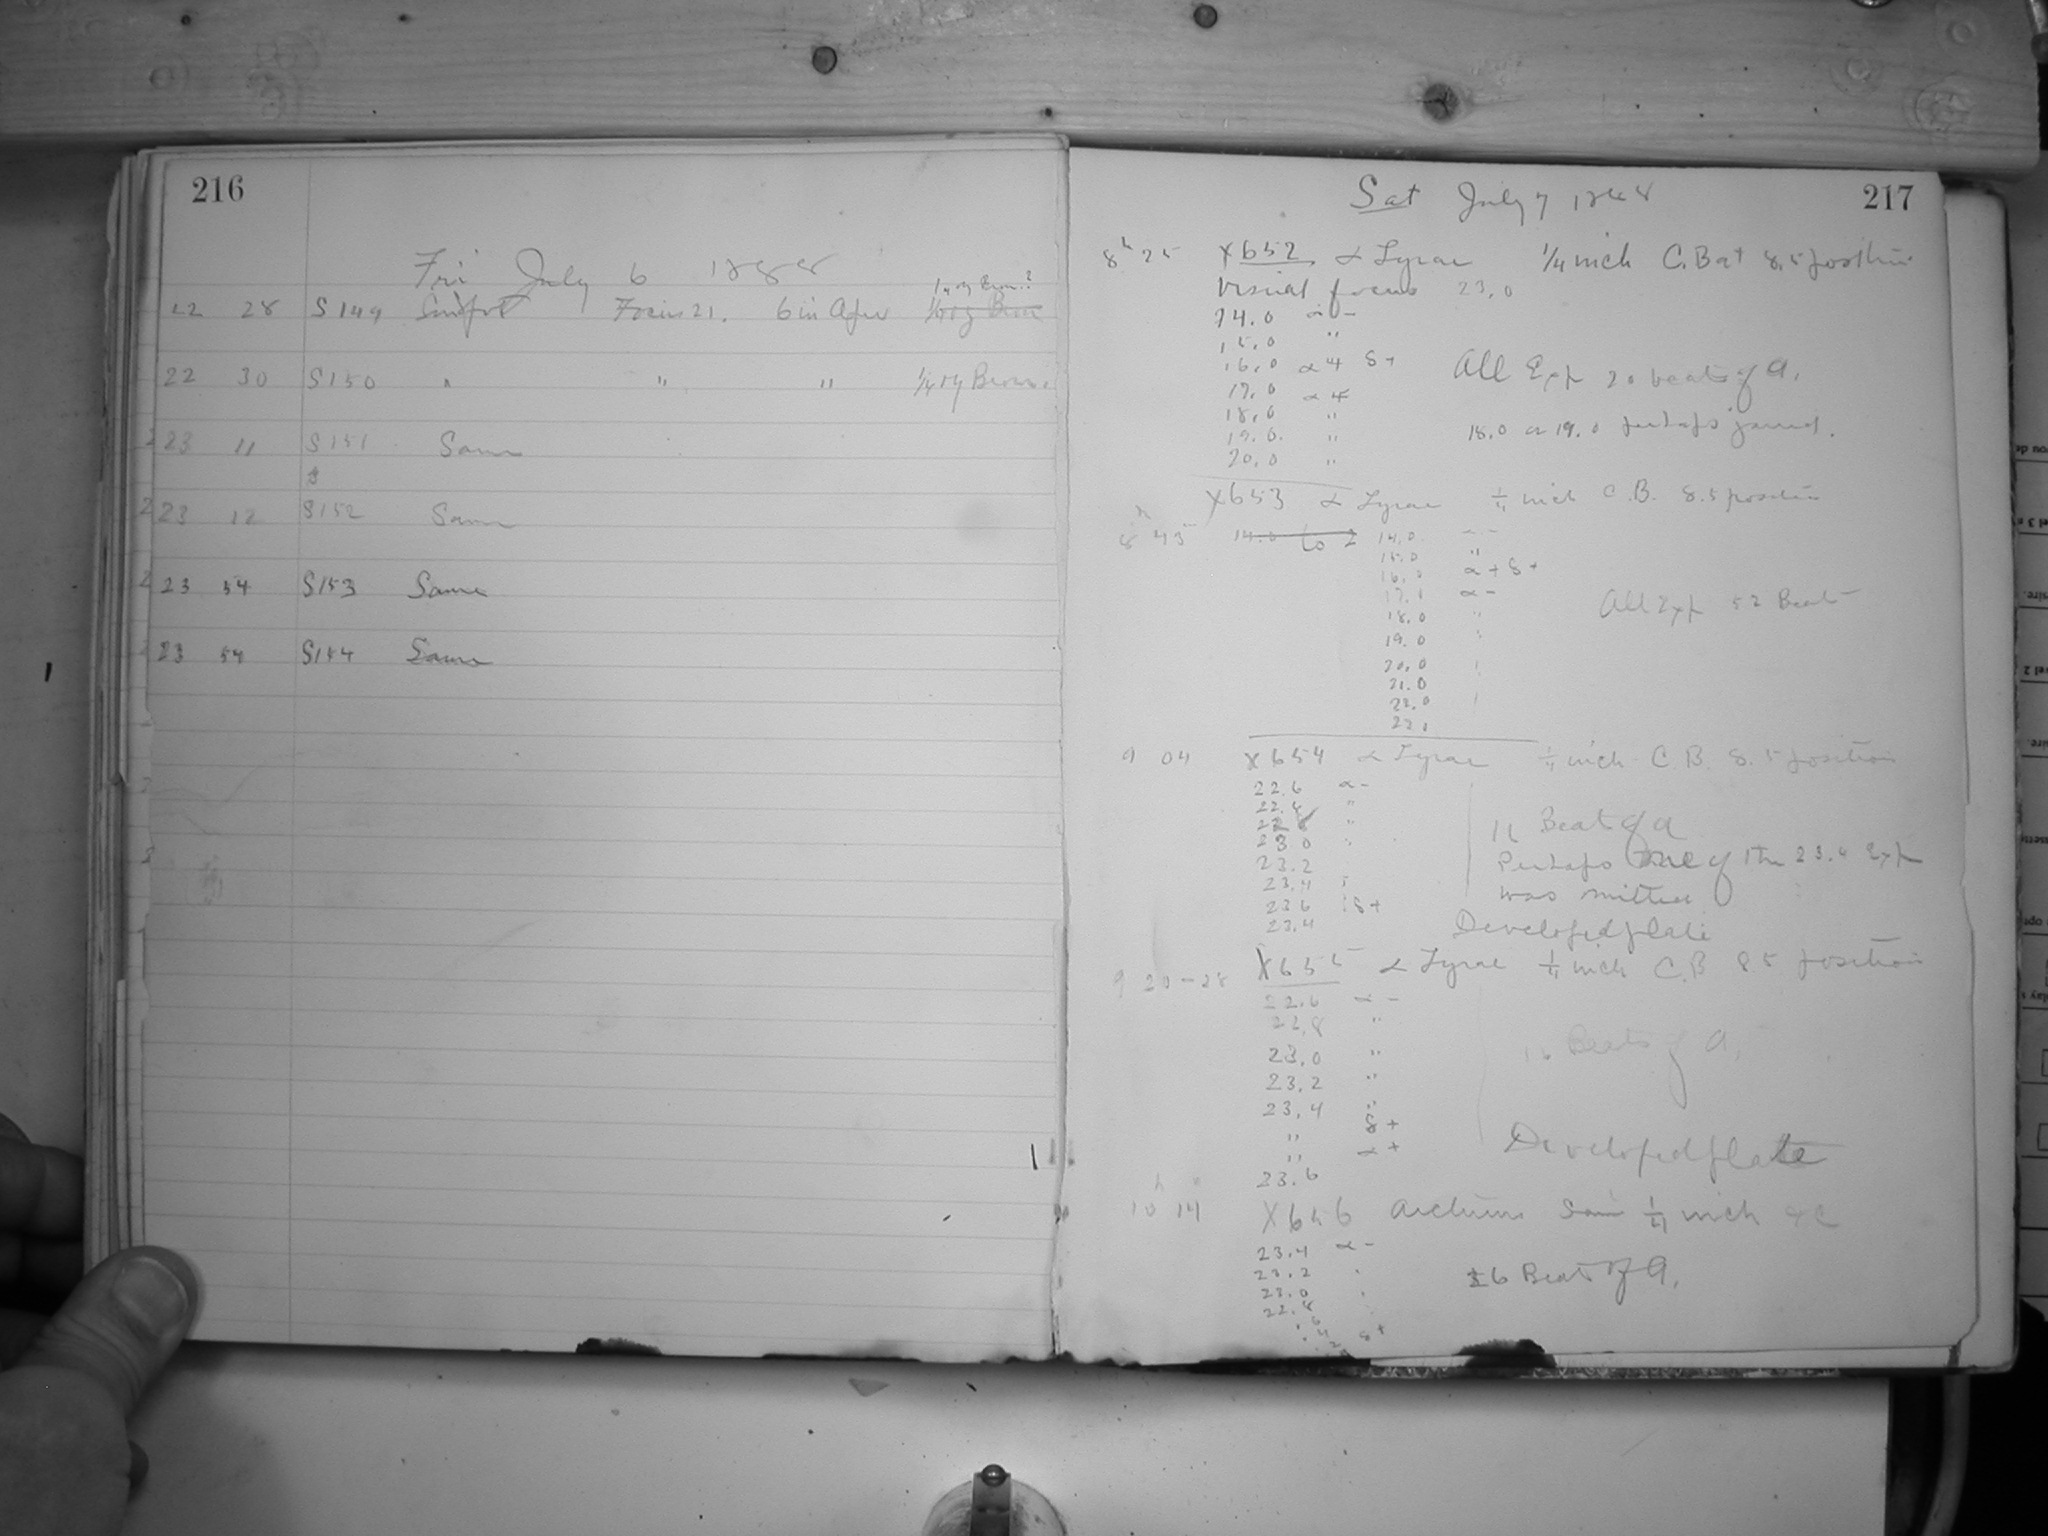 216
Fri July 6 1888
22 28 S149 Focus 21. 6 in Aper
22 30 S150 " " "
23 11 S151 Same
23 12 S152 Same
23 54 S153 Same
23 54 S154 Same
Sat July 7 1888
217
8h 25 X652 α Lyrae 1/4 inch C. B at 8.5 position
Visual focus 23.0
14.0 α -
15.0 "
16.0 α + δ +
17.0
18.0 "
19.0 "
20.0 "
All Exp 20 beats of a.
18.0 or 19.0 perhaps jarred.
X653 α Lyrae 1/4 inch C.B. 8.5 position
8h 43 14.0 to 2
14.0
15.0 "
16.0 α + δ +
17.0 α -
18.0 "
19.0
20.0
21.0
22.0
All Exp 52 Beats
9 04 X654 α Lyrae 1/4 inch C.B. 8.5 position
22.6 α -
22.8
23.0
23.2
23.4
23.6 δ +
23.4
Beats of a
Perhaps one of the 23.4 Exp
was
Developed plate
9 20-28 X655 α Lyrae 1/4 inch C.B 8.5 position
22.6 α -
22.8 "
23.0 "
23.2 "
23.4 "
" δ +
" α +
23.6
16 Beats of a.
Developed plate
10 14 X656 Arcturus Same 1/4 inch &c
23.4 α -
23.2
23.0
22.8
δ +
16 Beats of a.